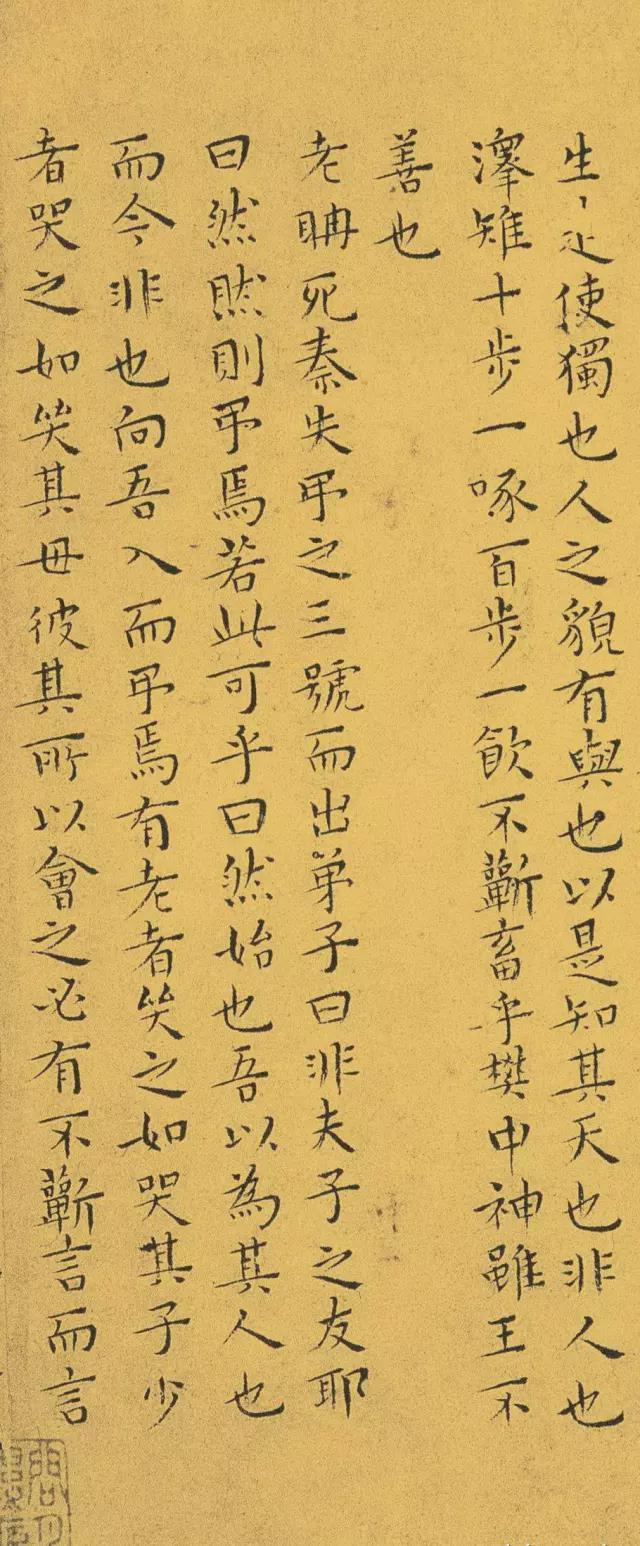 生丶是使獨也人之貌有與也以是知其天也非人也
澤雉十步一啄百步一飲不蘄畜乎樊中神雖王不
善也
老聃死秦失弔之三號而出弟子曰非夫子之友耶
曰然然則弔焉若此可乎曰然始也吾以為其人也
而今非也向吾入而弔焉有老者哭之如哭其子少
者哭之如哭其母彼其所以會之必有不蘄言而言